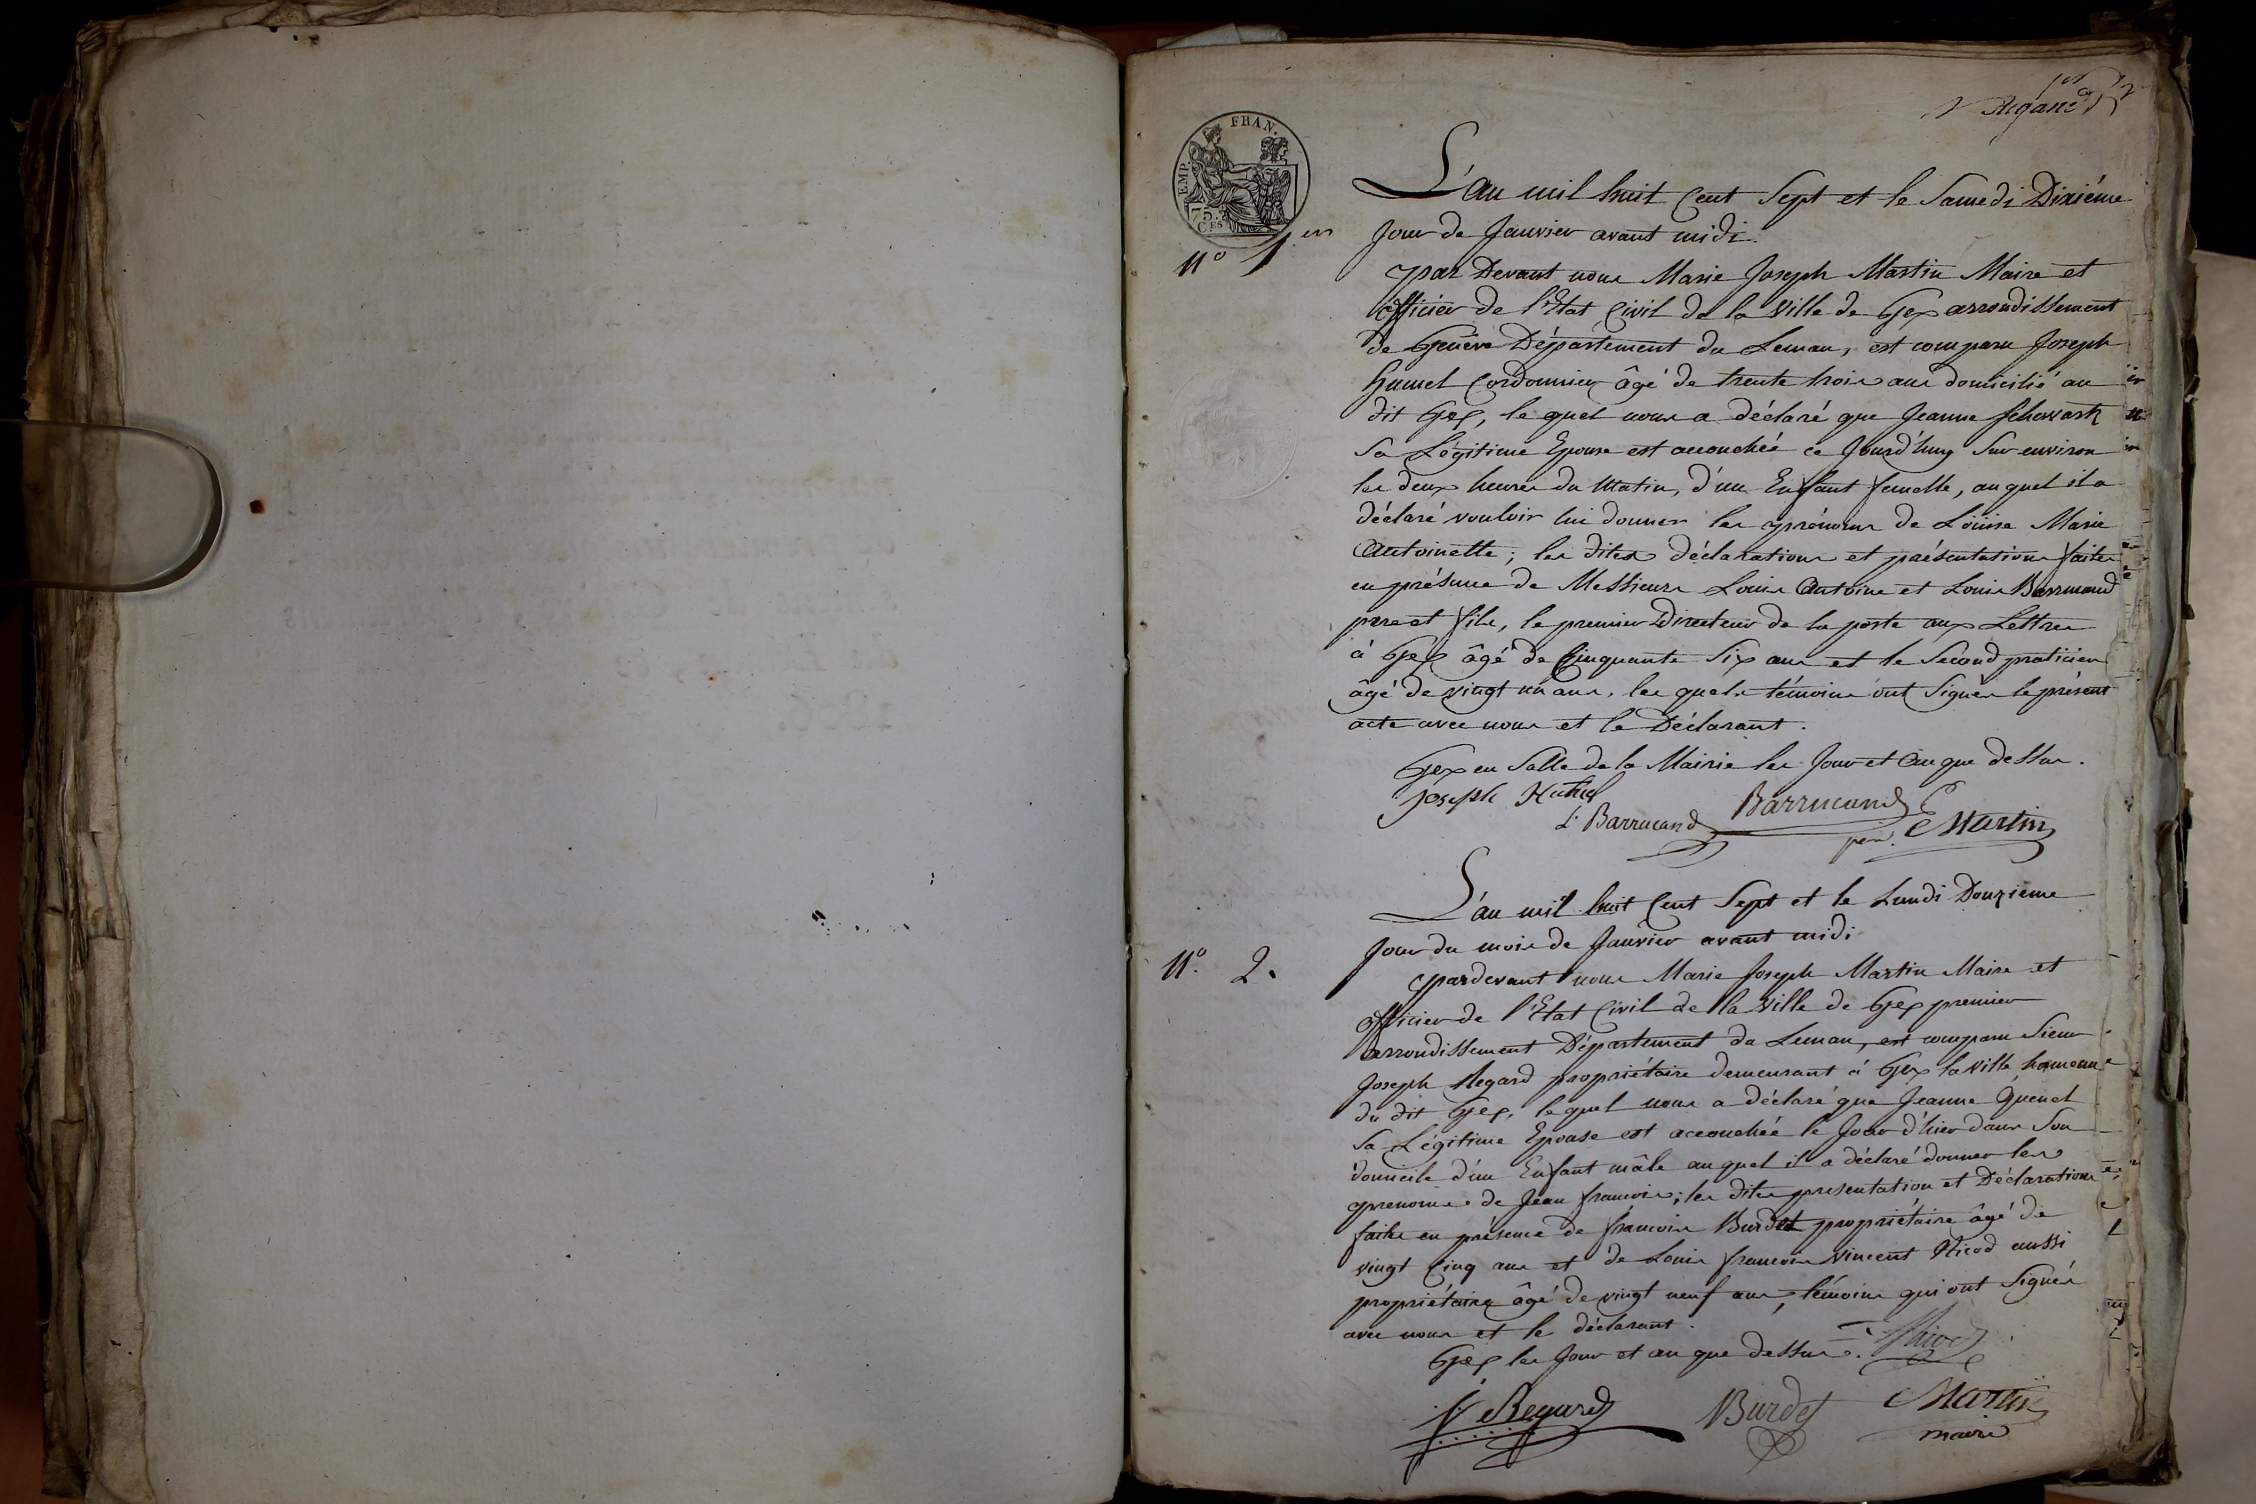 EMP. FRAN.
75
CES
L'an mil huit Cent Sept et le Samedi Dixiéme
N° 1er
Jour de Janvier avant midi.
par Devant nous Marie Joseph Martin Maire et
officier de l'Etat Civil de la Ville de Gex arrondissement
de Genève Département du Leman, est comparu Joseph
Cordonnier âgé de trente trois ans domicilié au
dit Gex, le quel nous a déclaré que Jeanne
Sa Légitime Epouse est accouchée ce Jourd'huy Sur environ
les deux heures du Matin, d'un Enfant femelle, auquel il a
déclaré vouloir lui donner les prénoms de Loüise Marie
Antoinette; les dites déclaration et présentation faites
en présence de Messieurs Louis Antoine et Louis Barrucand
pere et fils, le premier Directeur de la poste aux Lettres
à Gex âgé de Cinquante Six ans et le Second praticien
âgé de vingt un ans, les quels témoins ont Signés le présent
acte avec nous et le Déclarant.
Gex en Salle de la Mairie les Jour et An que dessus.
Joseph
L. Barrucand Barrucand pere Martin
L'an mil huit Cent Sept et le Lundi Douzieme
Jour du mois de Janvier avant midi
N° 2.
pardevant nous Marie Joseph Martin Maire et
officier de l'Etat Civil de la Ville de Gex premier
arrondissement Département du Leman, est comparu Sieur
Joseph Regard propriétaire demeurant à Gex la Ville hameau
du dit Gex, lequel nous a déclaré que Jeanne
Sa Légitime Epouse est accouchée le Jour d'hier dans Son
domicile d'un Enfant mâle auquel il a déclaré donner les
prenoms de Jean francois; les dites presentation et Déclaration
faites en présence de francois Burdet propriétaire âgé de
vingt Cinq ans et de Louis francois Vincent Nicod aussi
propriétaire âgé de vingt neuf ans, témoins qui ont Signés
avec nous et le déclarant.
Gex les Jour et an que dessus.
Regard Burdet Martin
maire